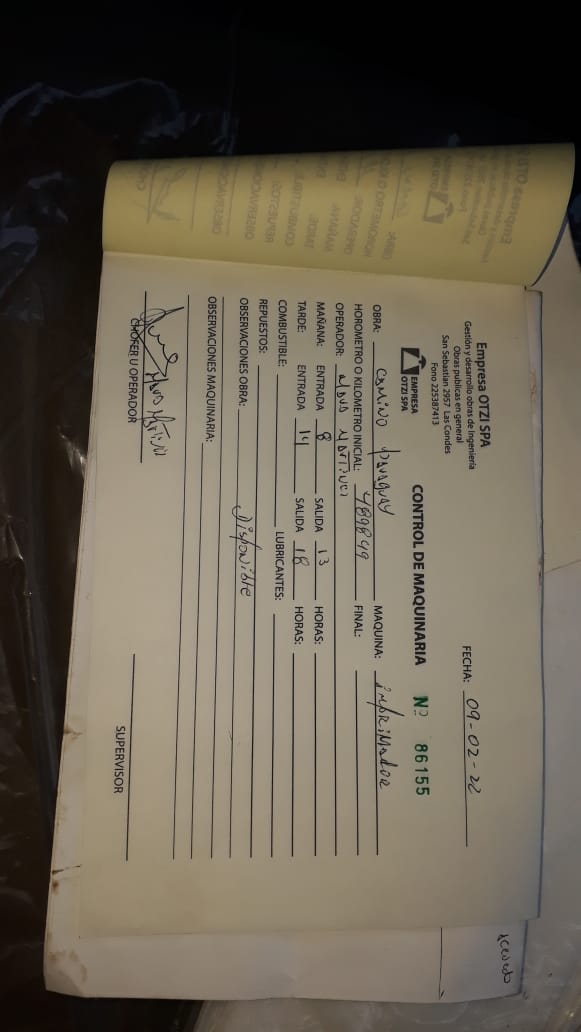 Empresa OTZI SPA
Gestión y desarrollo obras de Ingeniería
Obras publicas en general
San Sebastian 2957 Las Condes
Fono 225387413
EMPRESA
OTZI SPA
FECHA: 09-02-22
CONTROL DE MAQUINARIA Nº 86155
OBRA: camino paraguay MAQUINA: imprimador
HOROMETRO O KILOMETRO INICIAL: 489849 FINAL:
OPERADOR:
MAÑANA: ENTRADA 8 SALIDA 13 HORAS:
TARDE: ENTRADA 14 SALIDA 18 HORAS:
COMBUSTIBLE: LUBRICANTES:
REPUESTOS:
OBSERVACIONES OBRA: Disponible
OBSERVACIONES MAQUINARIA:
CHOFER U OPERADOR
SUPERVISOR